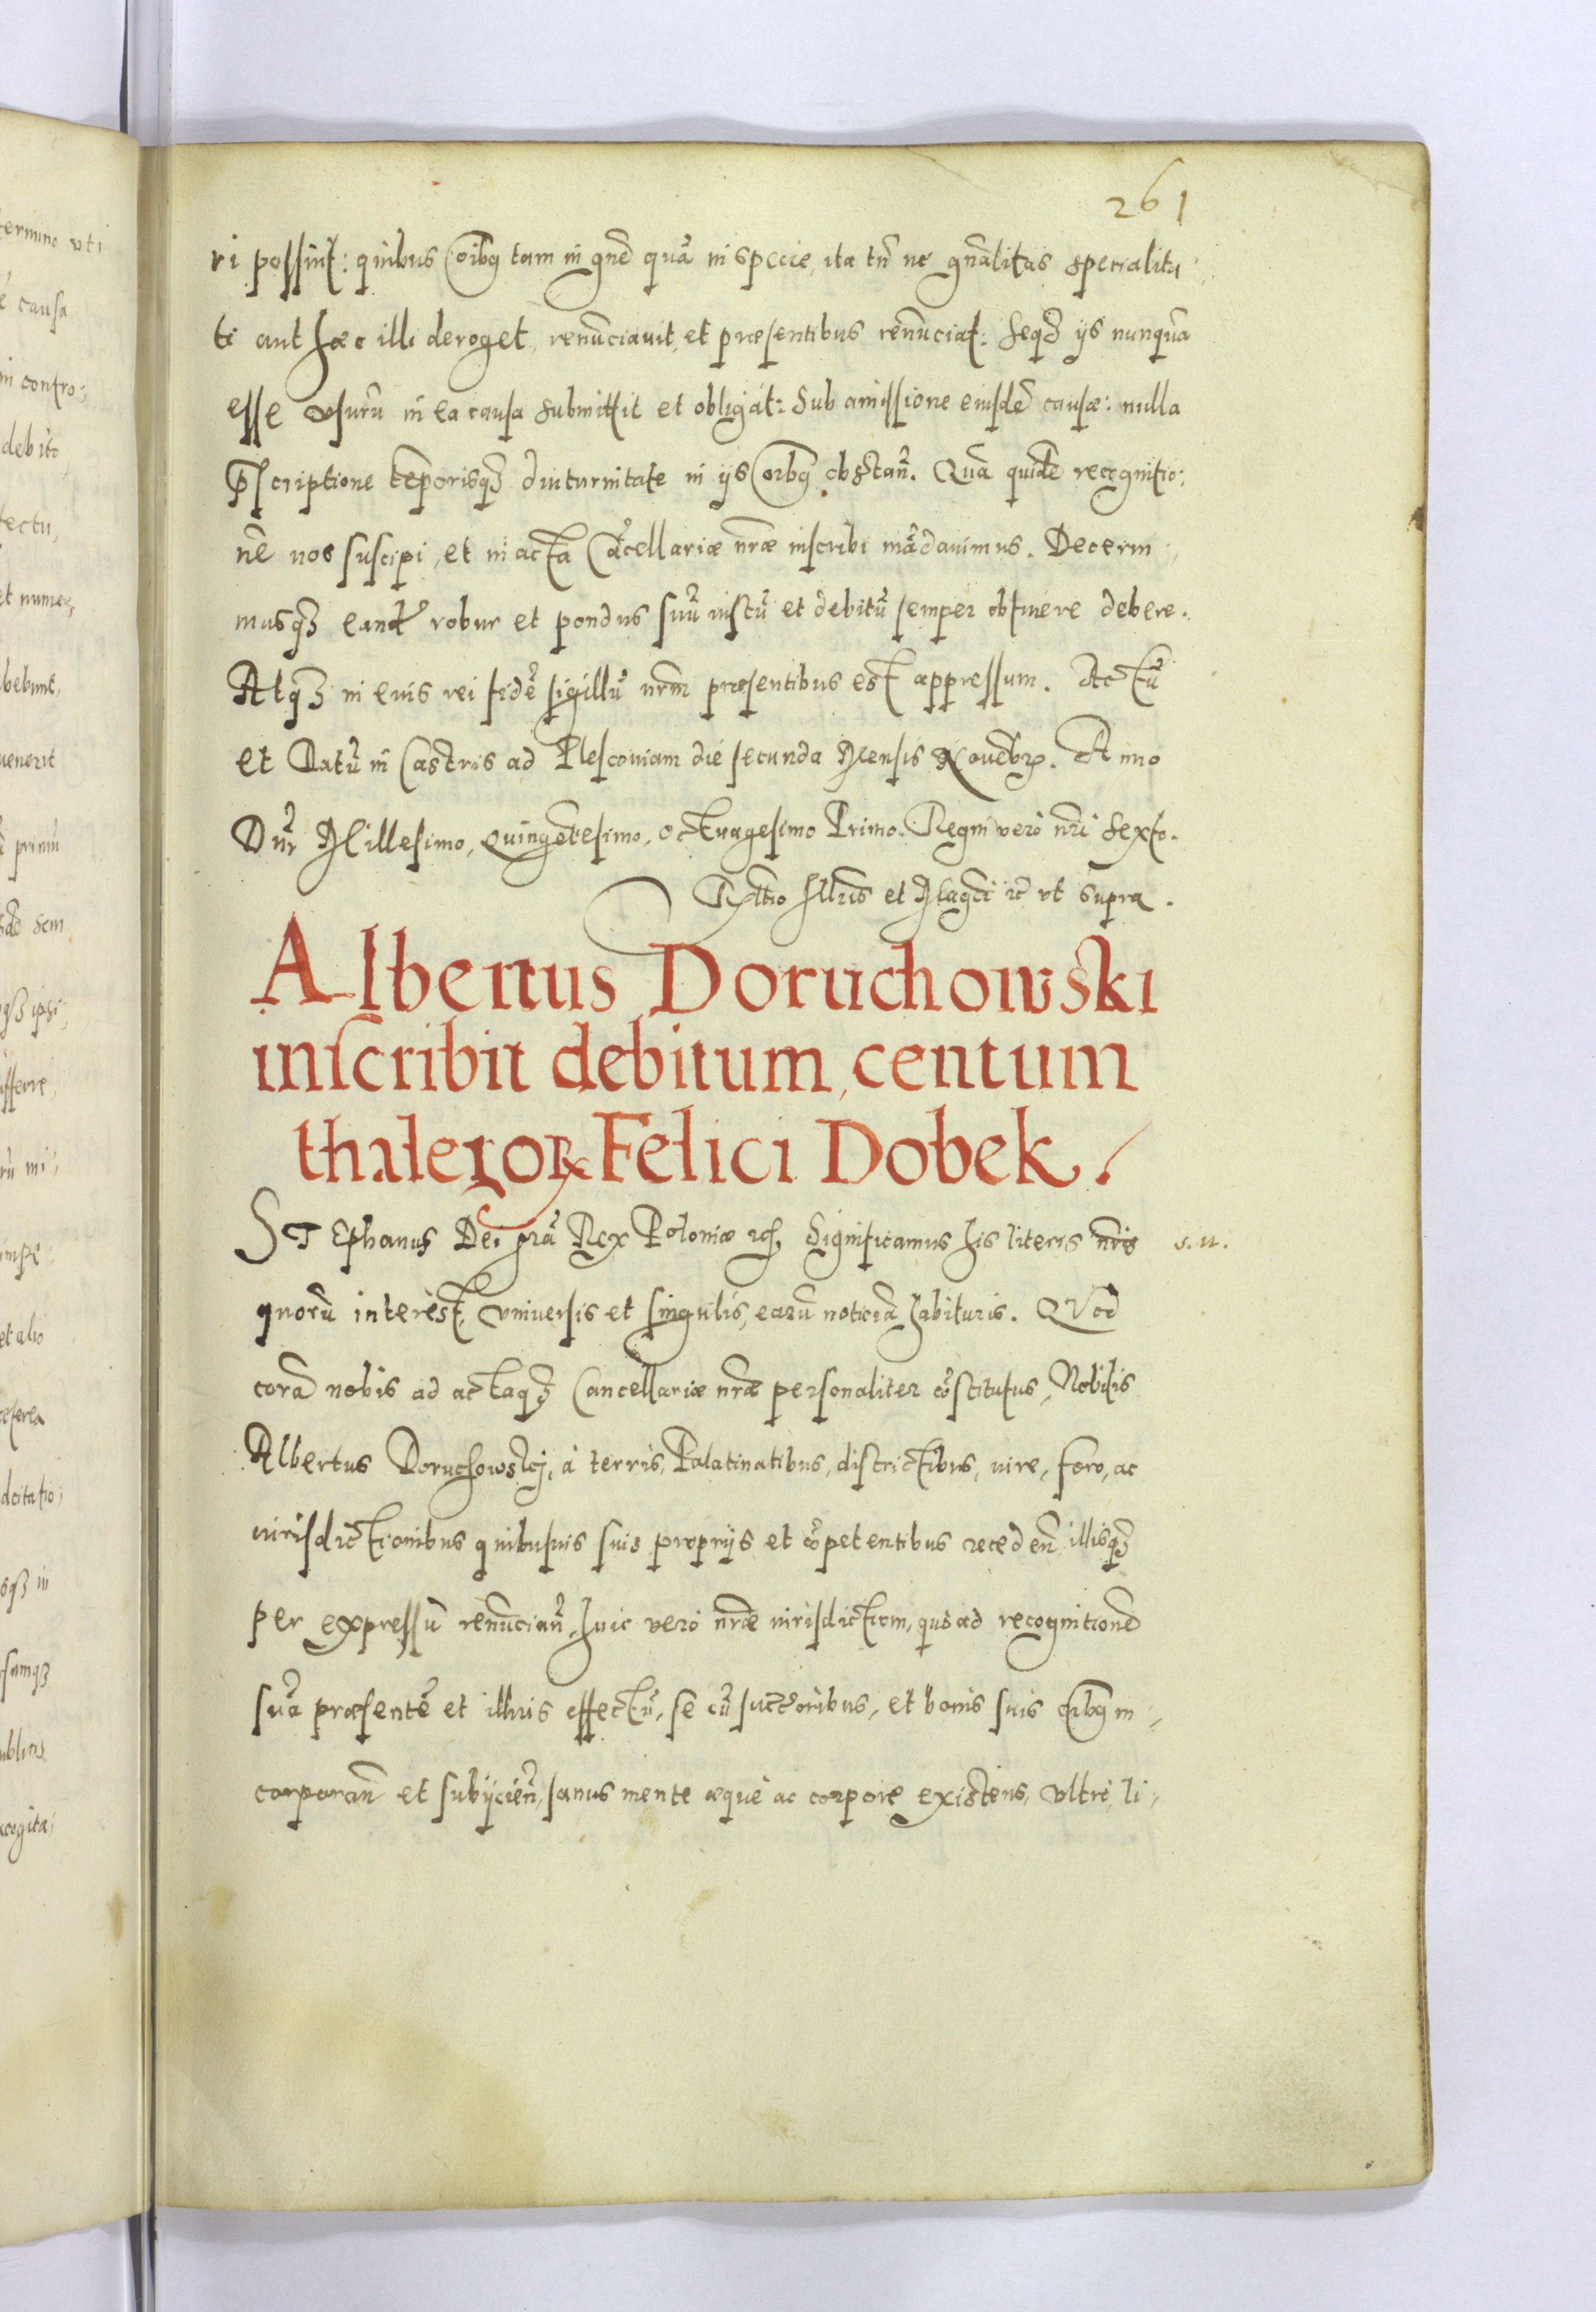 261
ri possint: quibus oībq tam in gñe quā in specie, ita tñ ne gñalitas specialita:
ti aut hæc illi deroget, renūciauit, et præsentibus renūciat: seq3 ijs nunquā
esse vsurū in ea causa submittit et obligat: Sub amissione eiusdē causæ: nulla
p̄scriptione tēporisq3 diuturnitate in ijs oībq obstañ. Quā quidē recognitio:
nē nos suscipi, et in acta Cācellariæ nr̄æ inscribi mādauimus. Decerni:
musq3 eand' robur et pondus suū iustū et debitū semper obtinere debere.
Atq3 in euis rei fidē sigillū nr̄m præsentibus est appressum. Actū
et Datū in Castris ad Plescouiam die secunda Mensis Nouēbꝝ. Anno
Dn̄i Millesimo, Quingētesimo, octuagesimo Primo. Regni vero nr̄i sexto.
Rl̄tio Illr̄is et Magc̄i ꝛc̄ vt supra.
Albertus Doruchowski
inſcribit debitum, centum
thaleroꝝ Felici Dobek.
STEphanus Dei grā̃ Rex Poloniæ ꝛc̄, Significamus his literis nr̄is s. n.
quorū interest, vniuersis et singulis, earū noticiā habituris. QVod
corā nobis ad actaq3 Cancellariæ nr̄æ personaliter cōstitutus, Nobilis
Albertus Doruchowskj, à terris, Palatinatibus, districtibus, iure, foro, ac
iurisdictionibus quibusuis suis proprijs et cōpetentibus recedeñ illisq3
per expressū renūciañ, huic vero nr̄æ iurisdictioni, quo ad recognitionē
suā præsentē et illius effectū, se cū suctōribus, et bonis suis oībq in:
corporañ et subijcieñ, sanus mente æquè ac corpore existens, vltrò, li: